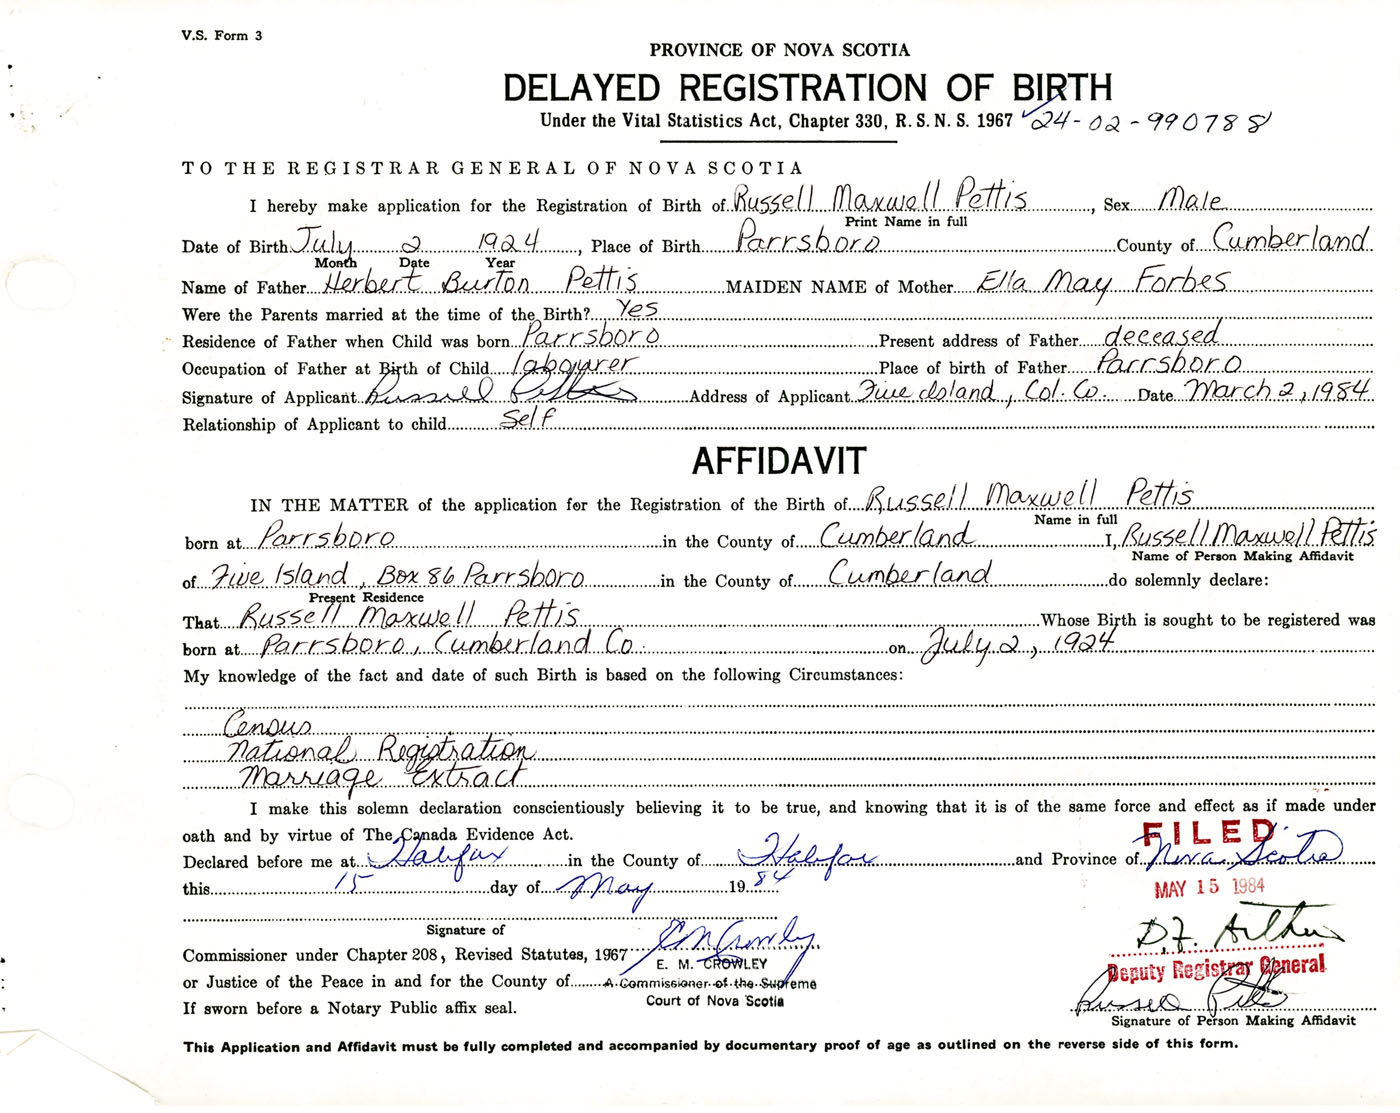 V.S. Form 3
PROVINCE OF NOVA SCOTIA
DELAYED REGISTRATION OF BIRTH
Under the Vital Statistics Act, Chapter 330, R.S.N.S. 1967 24-02-990788
TO THE REGISTRAR GENERAL OF NOVA SCOTIA
I hereby make application for the Registration of Birth of Russell Maxwell Pettis, Sex Male
Print Name in full
Date of Birth July 2 1924, Place of Birth Parrsboro County of Cumberland
Month Date Year
Name of Father Herbert Burton Pettis MAIDEN NAME of Mother Ella May Forbes
Were the Parents married at the time of the Birth? Yes
Residence of Father when Child was born Parrsboro Present address of Father deceased
Occupation of Father at Birth of Child labourer Place of birth of Father Parrsboro
Signature of Applicant Russell Pettis Address of Applicant Five Island, Col. Co. Date March 2, 1984
Relationship of Applicant to child Self
AFFIDAVIT
IN THE MATTER of the application for the Registration of the Birth of Russell Maxwell Pettis
Name in full
born at Parrsboro in the County of Cumberland I, Russell Maxwell Pettis
Name of Person Making Affidavit
of Five Island, Box 86 Parrsboro in the County of Cumberland do solemnly declare:
Present Residence
That Russell Maxwell Pettis Whose Birth is sought to be registered was
born at Parrsboro, Cumberland Co. on July 2, 1924
My knowledge of the fact and date of such Birth is based on the following Circumstances:
Census
National Registration
Marriage Extract
I make this solemn declaration conscientiously believing it to be true, and knowing that it is of the same force and effect as if made under
oath and by virtue of The Canada Evidence Act.
FILED
Declared before me at Halifax in the County of Halifax and Province of Nova Scotia
this 15 day of May 1984
MAY 15 1984
Signature of
D.F. Arthur
Commissioner under Chapter 208, Revised Statutes, 1967 E M Crowley
E. M. CROWLEY
Deputy Registrar General
or Justice of the Peace in and for the County of A Commissioner of the Supreme
Court of Nova Scotia
Russell Pettis
If sworn before a Notary Public affix seal.
Signature of Person Making Affidavit
This Application and Affidavit must be fully completed and accompanied by documentary proof of age as outlined on the reverse side of this form.